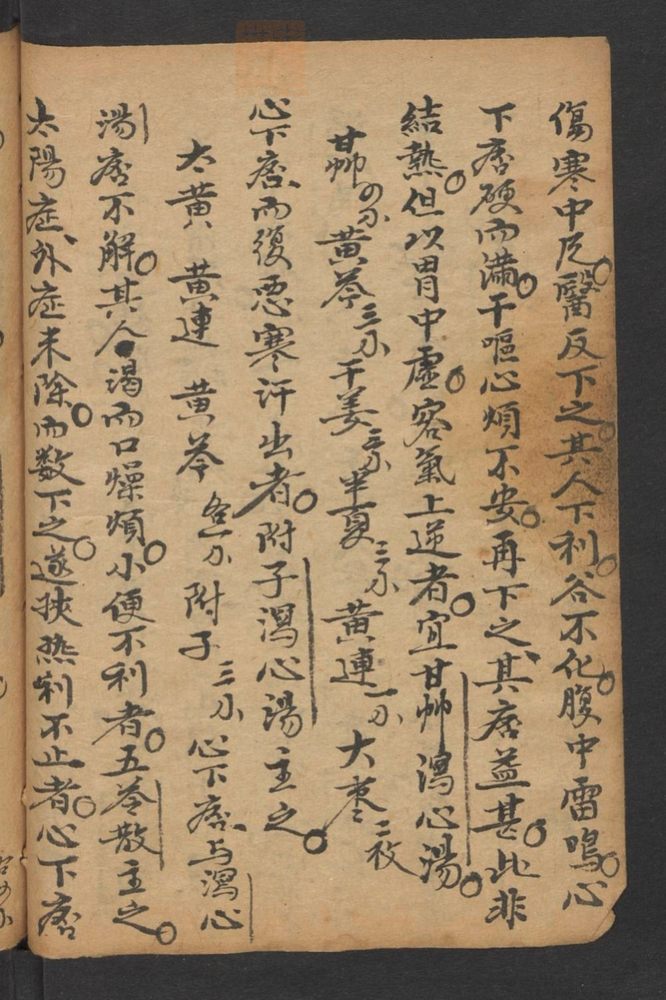 傷寒中风。醫反下之。其人下利。谷不化。腹中雷鳴。心
下痞硬而滿。干嘔心煩不安。再下之、其痞益甚。此非
結熱。但以胃中虛。客氣上逆者。宜甘艸瀉心湯。
甘艸四分 黄芩三分 干姜三分 半夏三分 黄連一分 大枣二枚
心下痞、而復惡寒汗出者。附子瀉心湯主之。
大黄 黄連 黄芩各一分 附子三分 心下痞、与瀉心
湯痞不解。其人渴而口燥煩。小便不利者。五苓散主之。
太陽症、外症未除。而数下之。遂挾热利不止者。心下痞